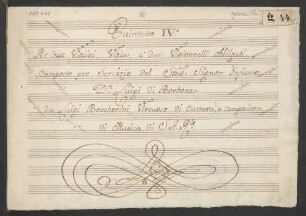 Quintetto IV.
Per due Violini Viola, e due Violoncelli Obligati
Composto per Servigio del Sermo Signor Infante
Dn Luigi di Borbone
Da Luigi Boccherini, Virtuoso di Camera, e Compositore
di Musica di S. A. R.